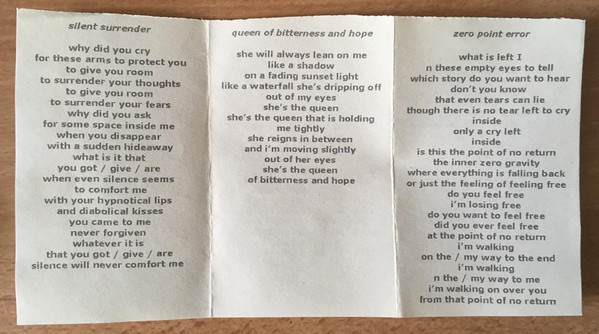 silent surrender
why did you cry
for these arms to protect you
to give you room
to surrender your thoughts
to give you room
to surrender your fears
why did you ask
for some space inside me
when you disappear
with a sudden hideaway
what is it that
you got / give / are
when even silence seems
to comfort me
with your hypnotical lips
and diabolical kisses
you came to me
never forgiven
whatever it is
that you got / give / are
silence will never comfort me
queen of bitterness and hope
she will always lean on me
like a shadow
on a fading sunset light
like a waterfall she's dripping off
out of my eyes
she's the queen
she's the queen that is holding
me tightly
she reigns in between
and i'm moving slightly
out of her eyes
she's the queen
of bitterness and hope
zero point error
what is left I
n these empty eyes to tell
which story do you want to hear
don't you know
that even tears can lie
though there is no tear left to cry
inside
only a cry left
inside
is this the point of no return
the inner zero gravity
where everything is falling back
or just the feeling of feeling free
do you feel free
i'm losing free
do you want to feel free
did you ever feel free
at the point of no return
i'm walking
on the / my way to the end
i'm walking
n the / my way to me
i'm walking on over you
from that point of no return